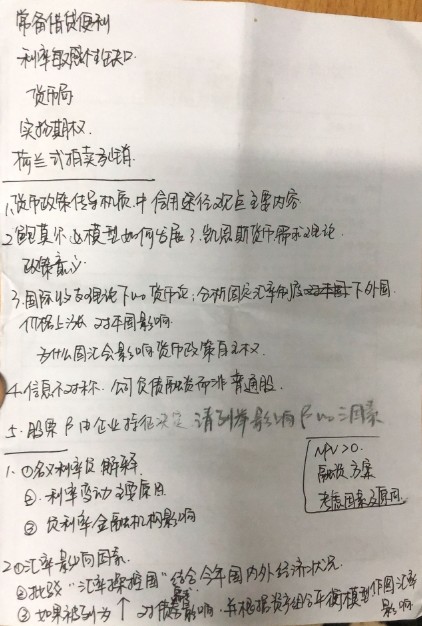 常备借贷便利
利率敏感性缺口
货币局
实物期权.
荷兰式拍卖
1.货币政策传导机质.中信用途径观点主要内容
2.鲍莫尔模型如何发展了.凯恩斯货币需求理论.
政策意义.
3.国际收支理论下の货币论,分析固定汇率制度下外国
价格上涨对本国影响.
为什么固汇会影响货币政策自主权.
4.信息不对称.公司负债融资而非普通股.
5.股票β由企业特征决定.请列举影响βの三因素
1.①名义利率负解释.
②.利率变动主要原因
③负利率金融机构影响
NPV>0.
融资方案
考虑因素及原因.
2.①汇率影响因素.
②批驳"汇率操控国"结合今年国内外经济状况.
③如果被列为↑对债券影响.并根据资产组合平衡模型作图汇率
影响